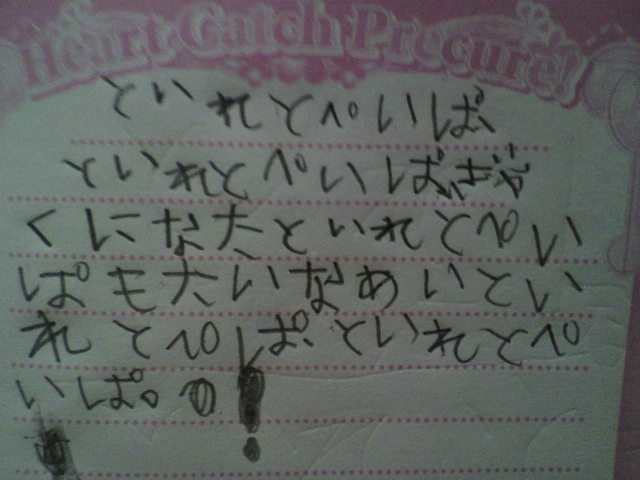 Heart Catch Precure!
といれとぺいぱ
といれとぺいぱがぎゃ
くになたといれとぺい
ぱもたいなあいとい
れとぺぱといれとぺ
いぱ。の!